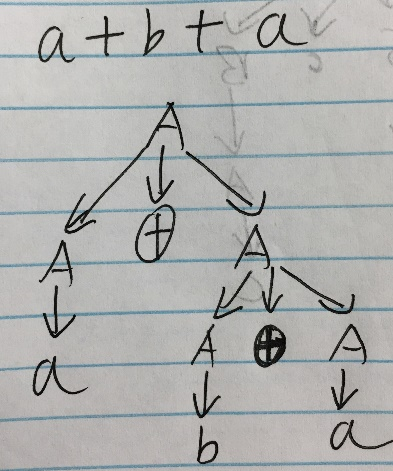 a + b + a
A
A + A
a A + A
b a